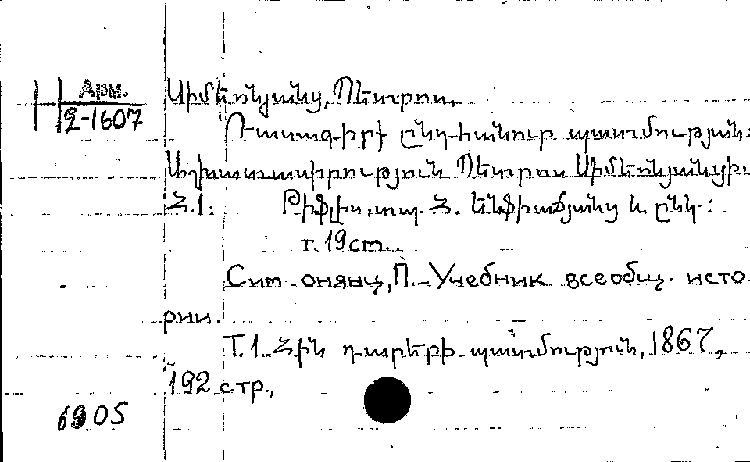 Арм.
2-1607
Սիմեոնյանց, Պետրոս.
Դասագիրք ընդհանուր պատմության:
Աշխատասիրություն Պետրոս Սիմեոնյանցի
Հ.1: Թիֆլիս, տպ. Հ. Էնֆիաճյանց և ընկ.:
г. 19 cm
Сим онянц, П. Учебник всеобщ. исто
рии.
Т.1. Հին դարերի պատմություն, 1867,
192 стр.,
6905